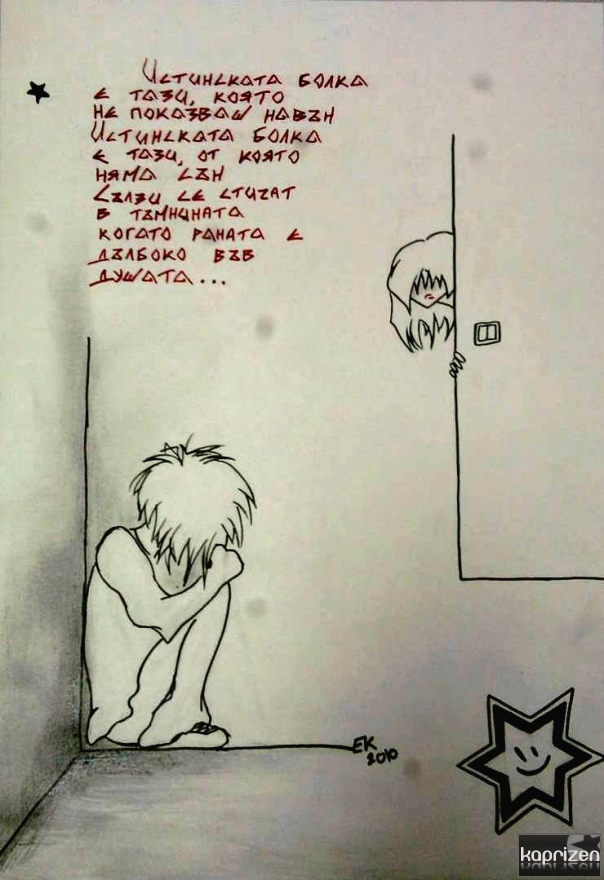 Истинската болка
е тази, която
не показваш навън
Истинската болка
е тази, от която
няма сън
Сълзи се стичат
в тъмнината
когато раната е
дълбоко във
душата...
EK
2010
kaprizen